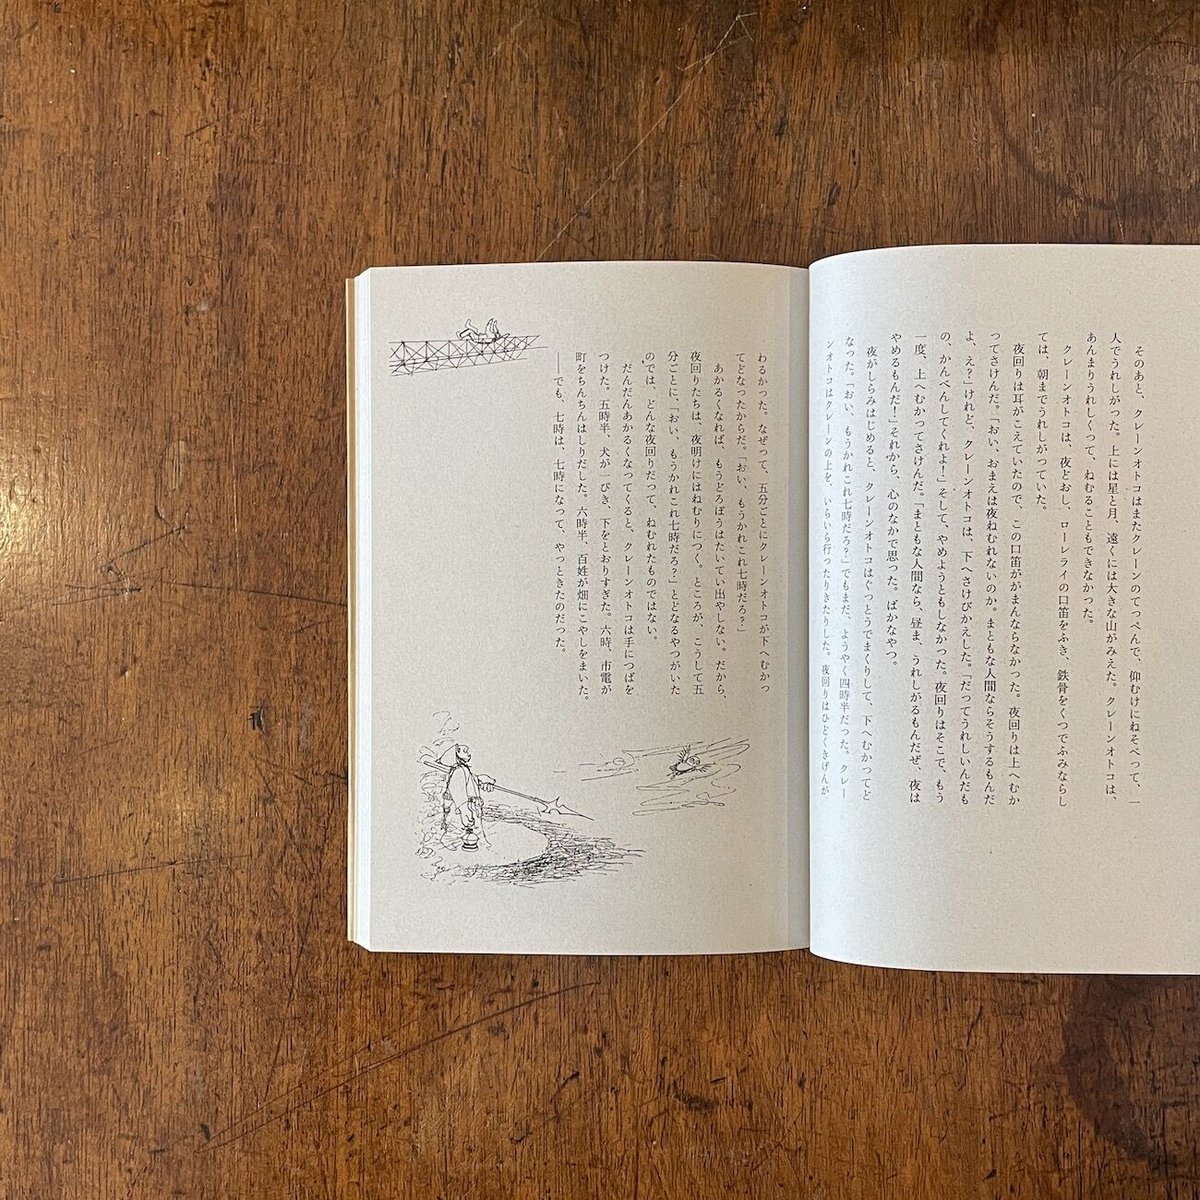 そのあと、クレーンオトコはまたクレーンのてっぺんで、仰むけにねそべって、一
人でうれしがった。上には星と月、遠くには大きな山がみえた。クレーンオトコは、
あんまりうれしくって、ねむることもできなかった。
クレーンオトコは、夜どおし、ローレライの口笛をふき、鉄骨をくつでふみならし
ては、朝までうれしがっていた。
夜回りは耳がこえていたので、この口笛ががまんならなかった。夜回りは上へむか
ってさけんだ。「おい、おまえは夜ねむれないのか。まともな人間ならそうするもんだ
よ、え？」けれど、クレーンオトコは、下へさけびかえした。「だってうれしいんだも
の、かんべんしてくれよ！」そして、やめようともしなかった。夜回りはそこで、もう
一度、上へむかってさけんだ。「まともな人間なら、昼ま、うれしがるもんだぜ、夜は
やめるもんだ！」それから、心のなかで思った。ばかなやつ。
夜がしらみはじめると、クレーンオトコはぐっとうでまくりして、下へむかってど
なった。「おい、もうかれこれ七時だろ？」でもまだ、ようやく四時半だった。クレー
ンオトコはクレーンの上を、いらいら行ったりきたりした。夜回りはひどくきげんが
わるかった。なぜって、五分ごとにクレーンオトコが下へむかっ
てどなったからだ。「おい、もうかれこれ七時だろ？」
あかるくなれば、もうどろぼうはたいてい出やしない。だから、
夜回りたちは、夜明けにはねむりにつく。ところが、こうして五
分ごとに、「おい、もうかれこれ七時だろ？」とどなるやつがいた
のでは、どんな夜回りだって、ねむれたものではない。
だんだんあかるくなってくると、クレーンオトコは手につばを
つけた。五時半、犬が一ぴき、下をとおりすぎた。六時、市電が
町をちんちんはしりだした。六時半、百姓が畑にこやしをまいた。
――でも、七時は、七時になって、やっときたのだった。